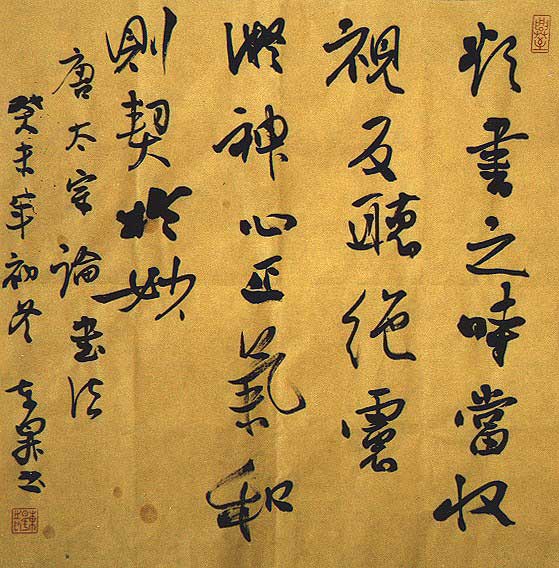 欲書之時當收
視反聽絕慮
凝神心正氣和
則契於妙
唐太宗論書法
癸未年初冬